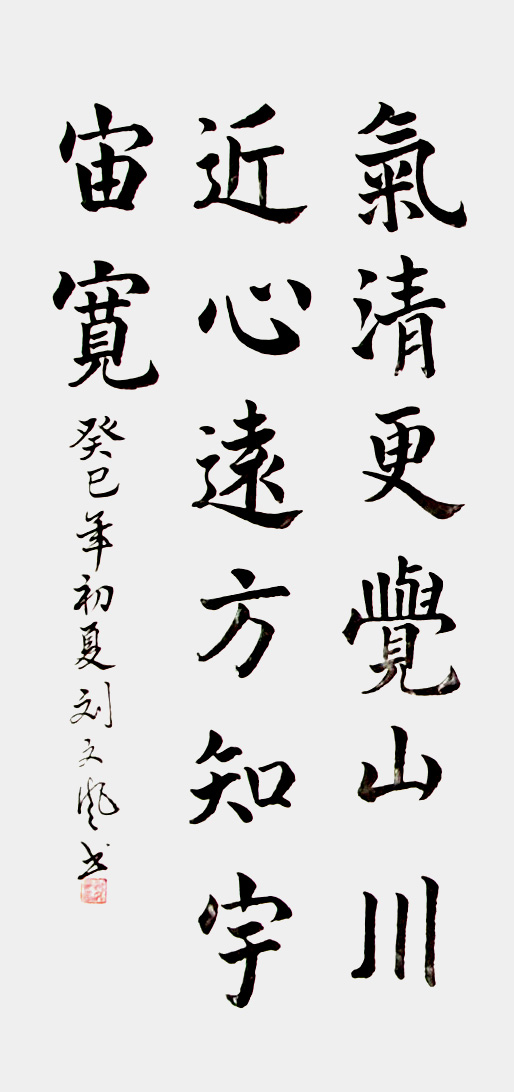 氣清更覺山川
近心遠方知宇
宙寬
癸巳年初夏刘文飛书